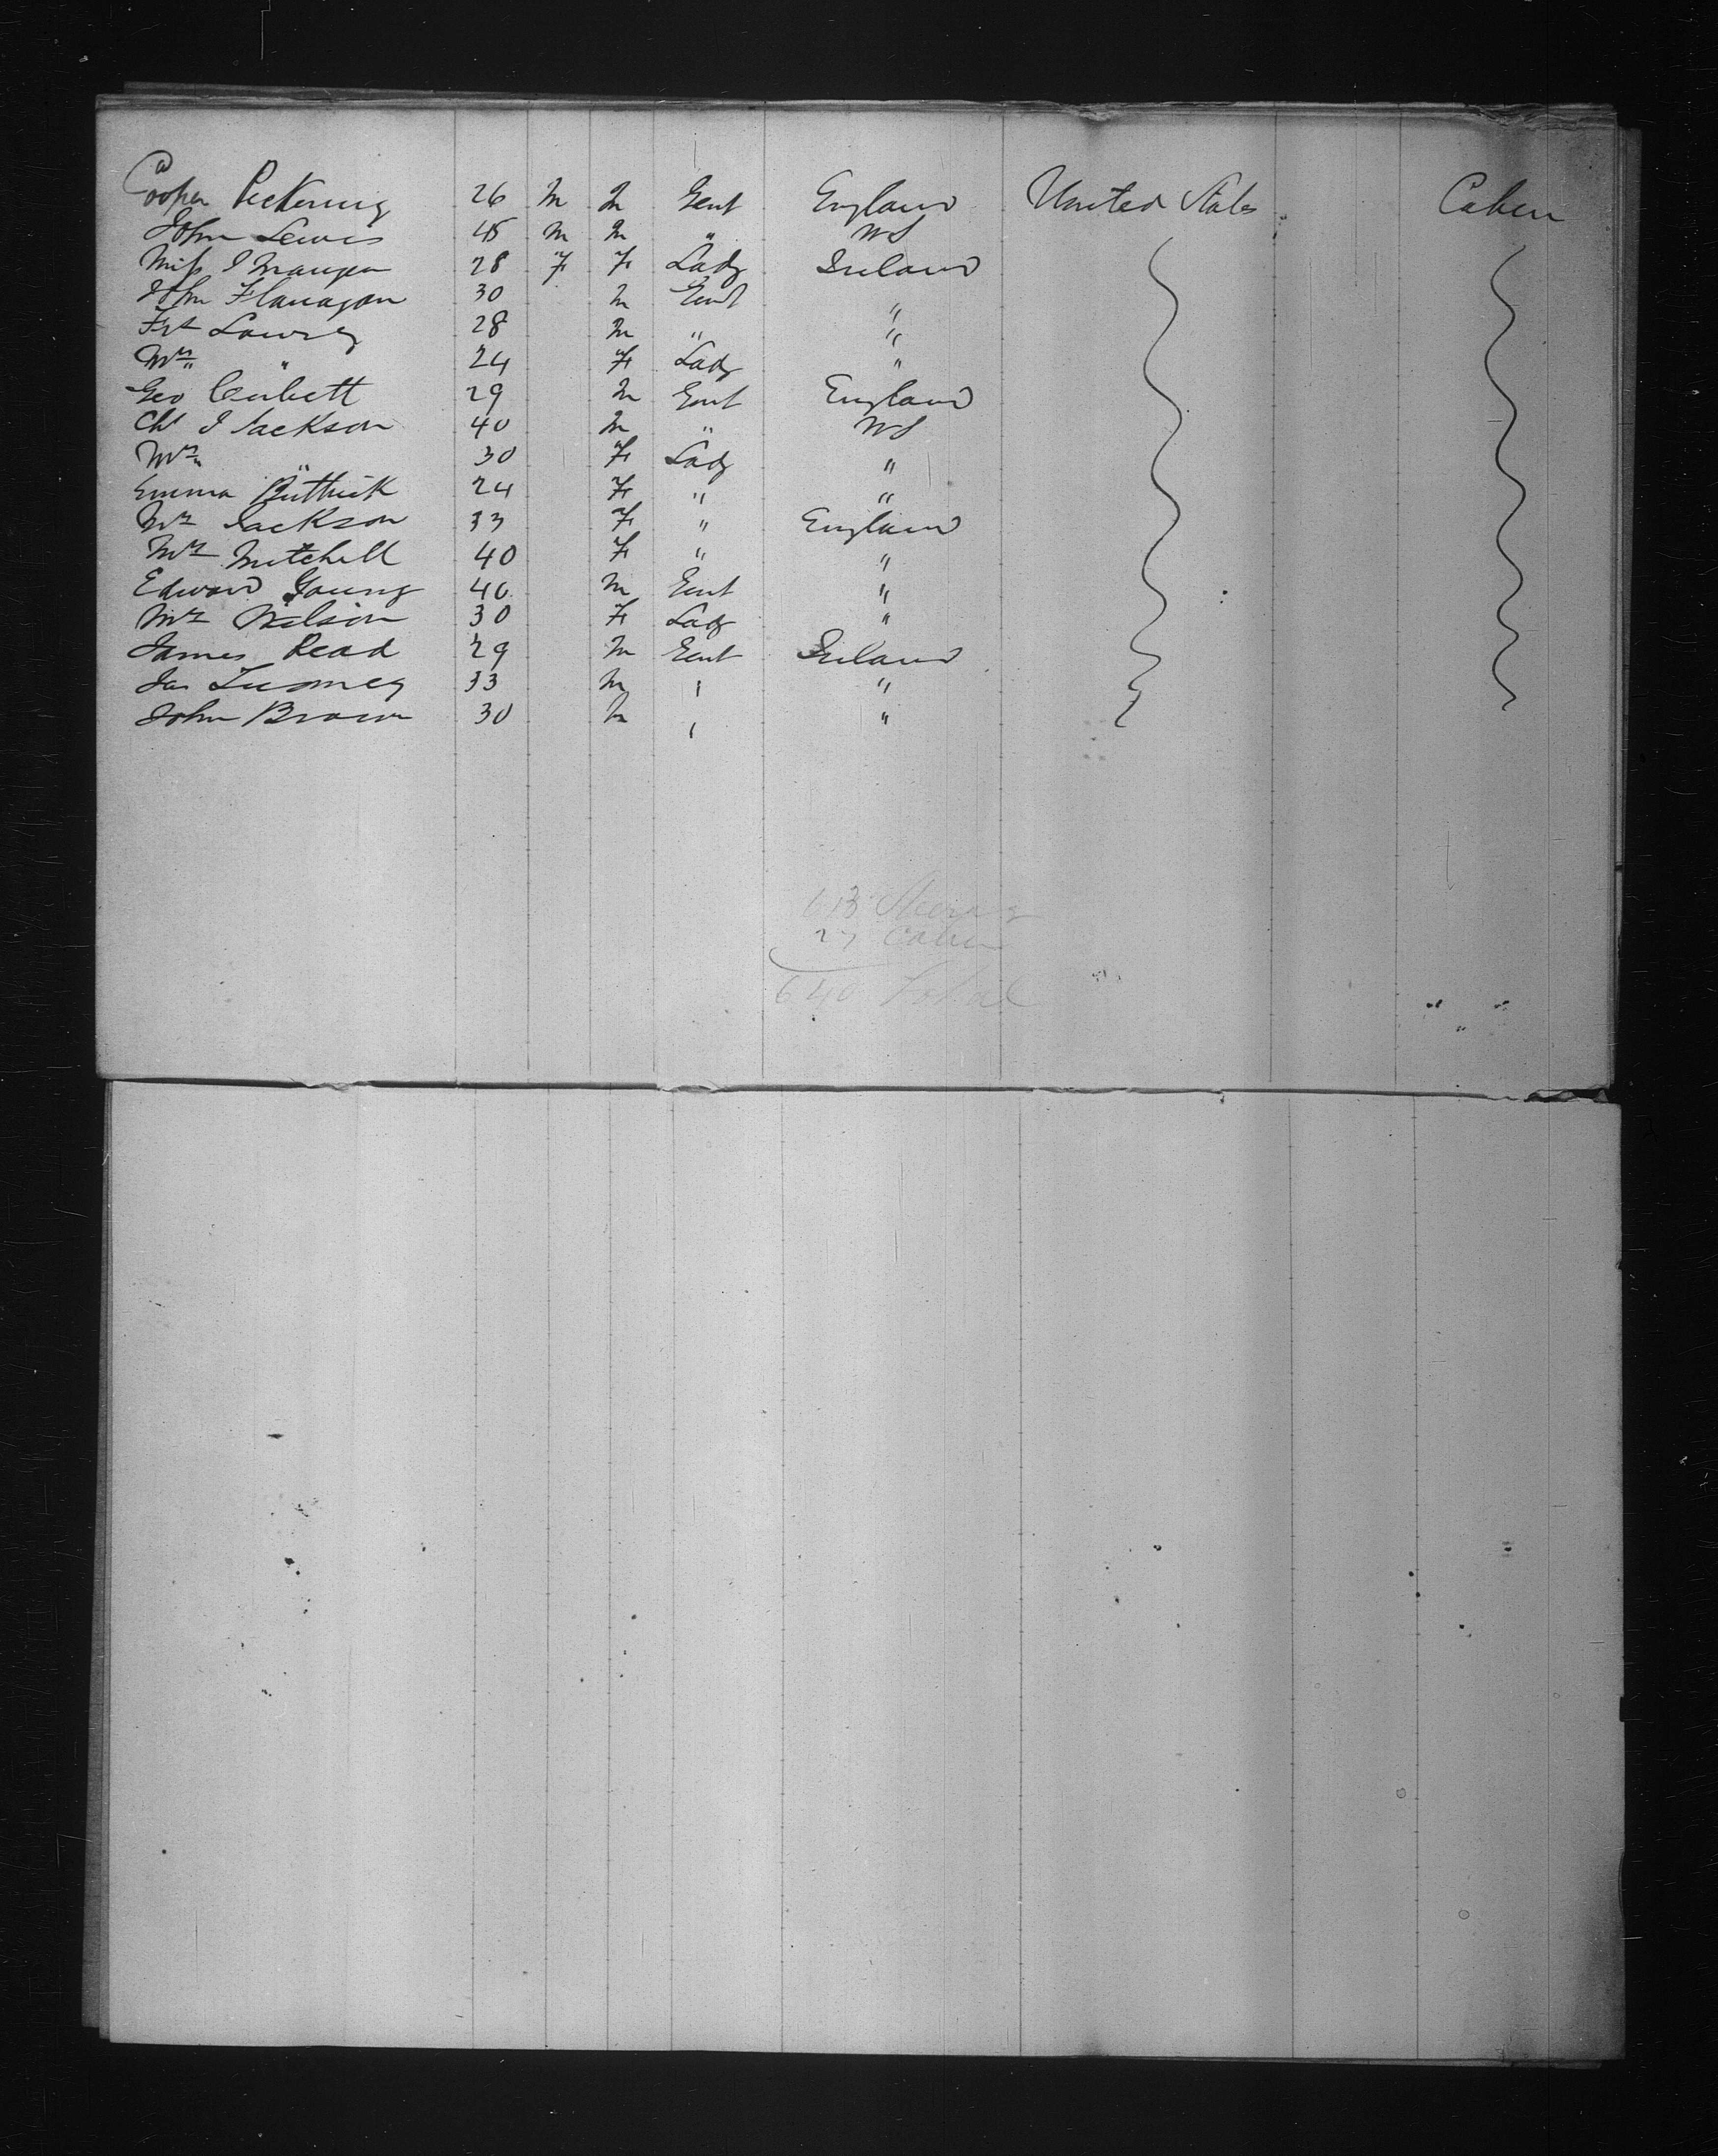 Cooper Pickering 26 m m Gent England United States Cabin
John Lewis 45 m m " US
Miss J Mangan 28 F F Lady Ireland
John Flanagan 30 m Gent "
Lowrey 28 m " "
Mrs " 24 F Lady "
Geo Corbett 29 m Gent England
Chs J Jackson 40 m " US
Mrs " 30 F Lady "
Emma Buttrick 24 F " "
Mrs Jackson 33 F " England
Mrs Mitchell 40 F " "
Edward Young 40 m Gent "
Mrs Nelson 30 F Lady "
James Read 29 m Gent Ireland
Jas 33 m " "
John Brown 30 m " "
613 Steerage
27 Cabin
640 Total